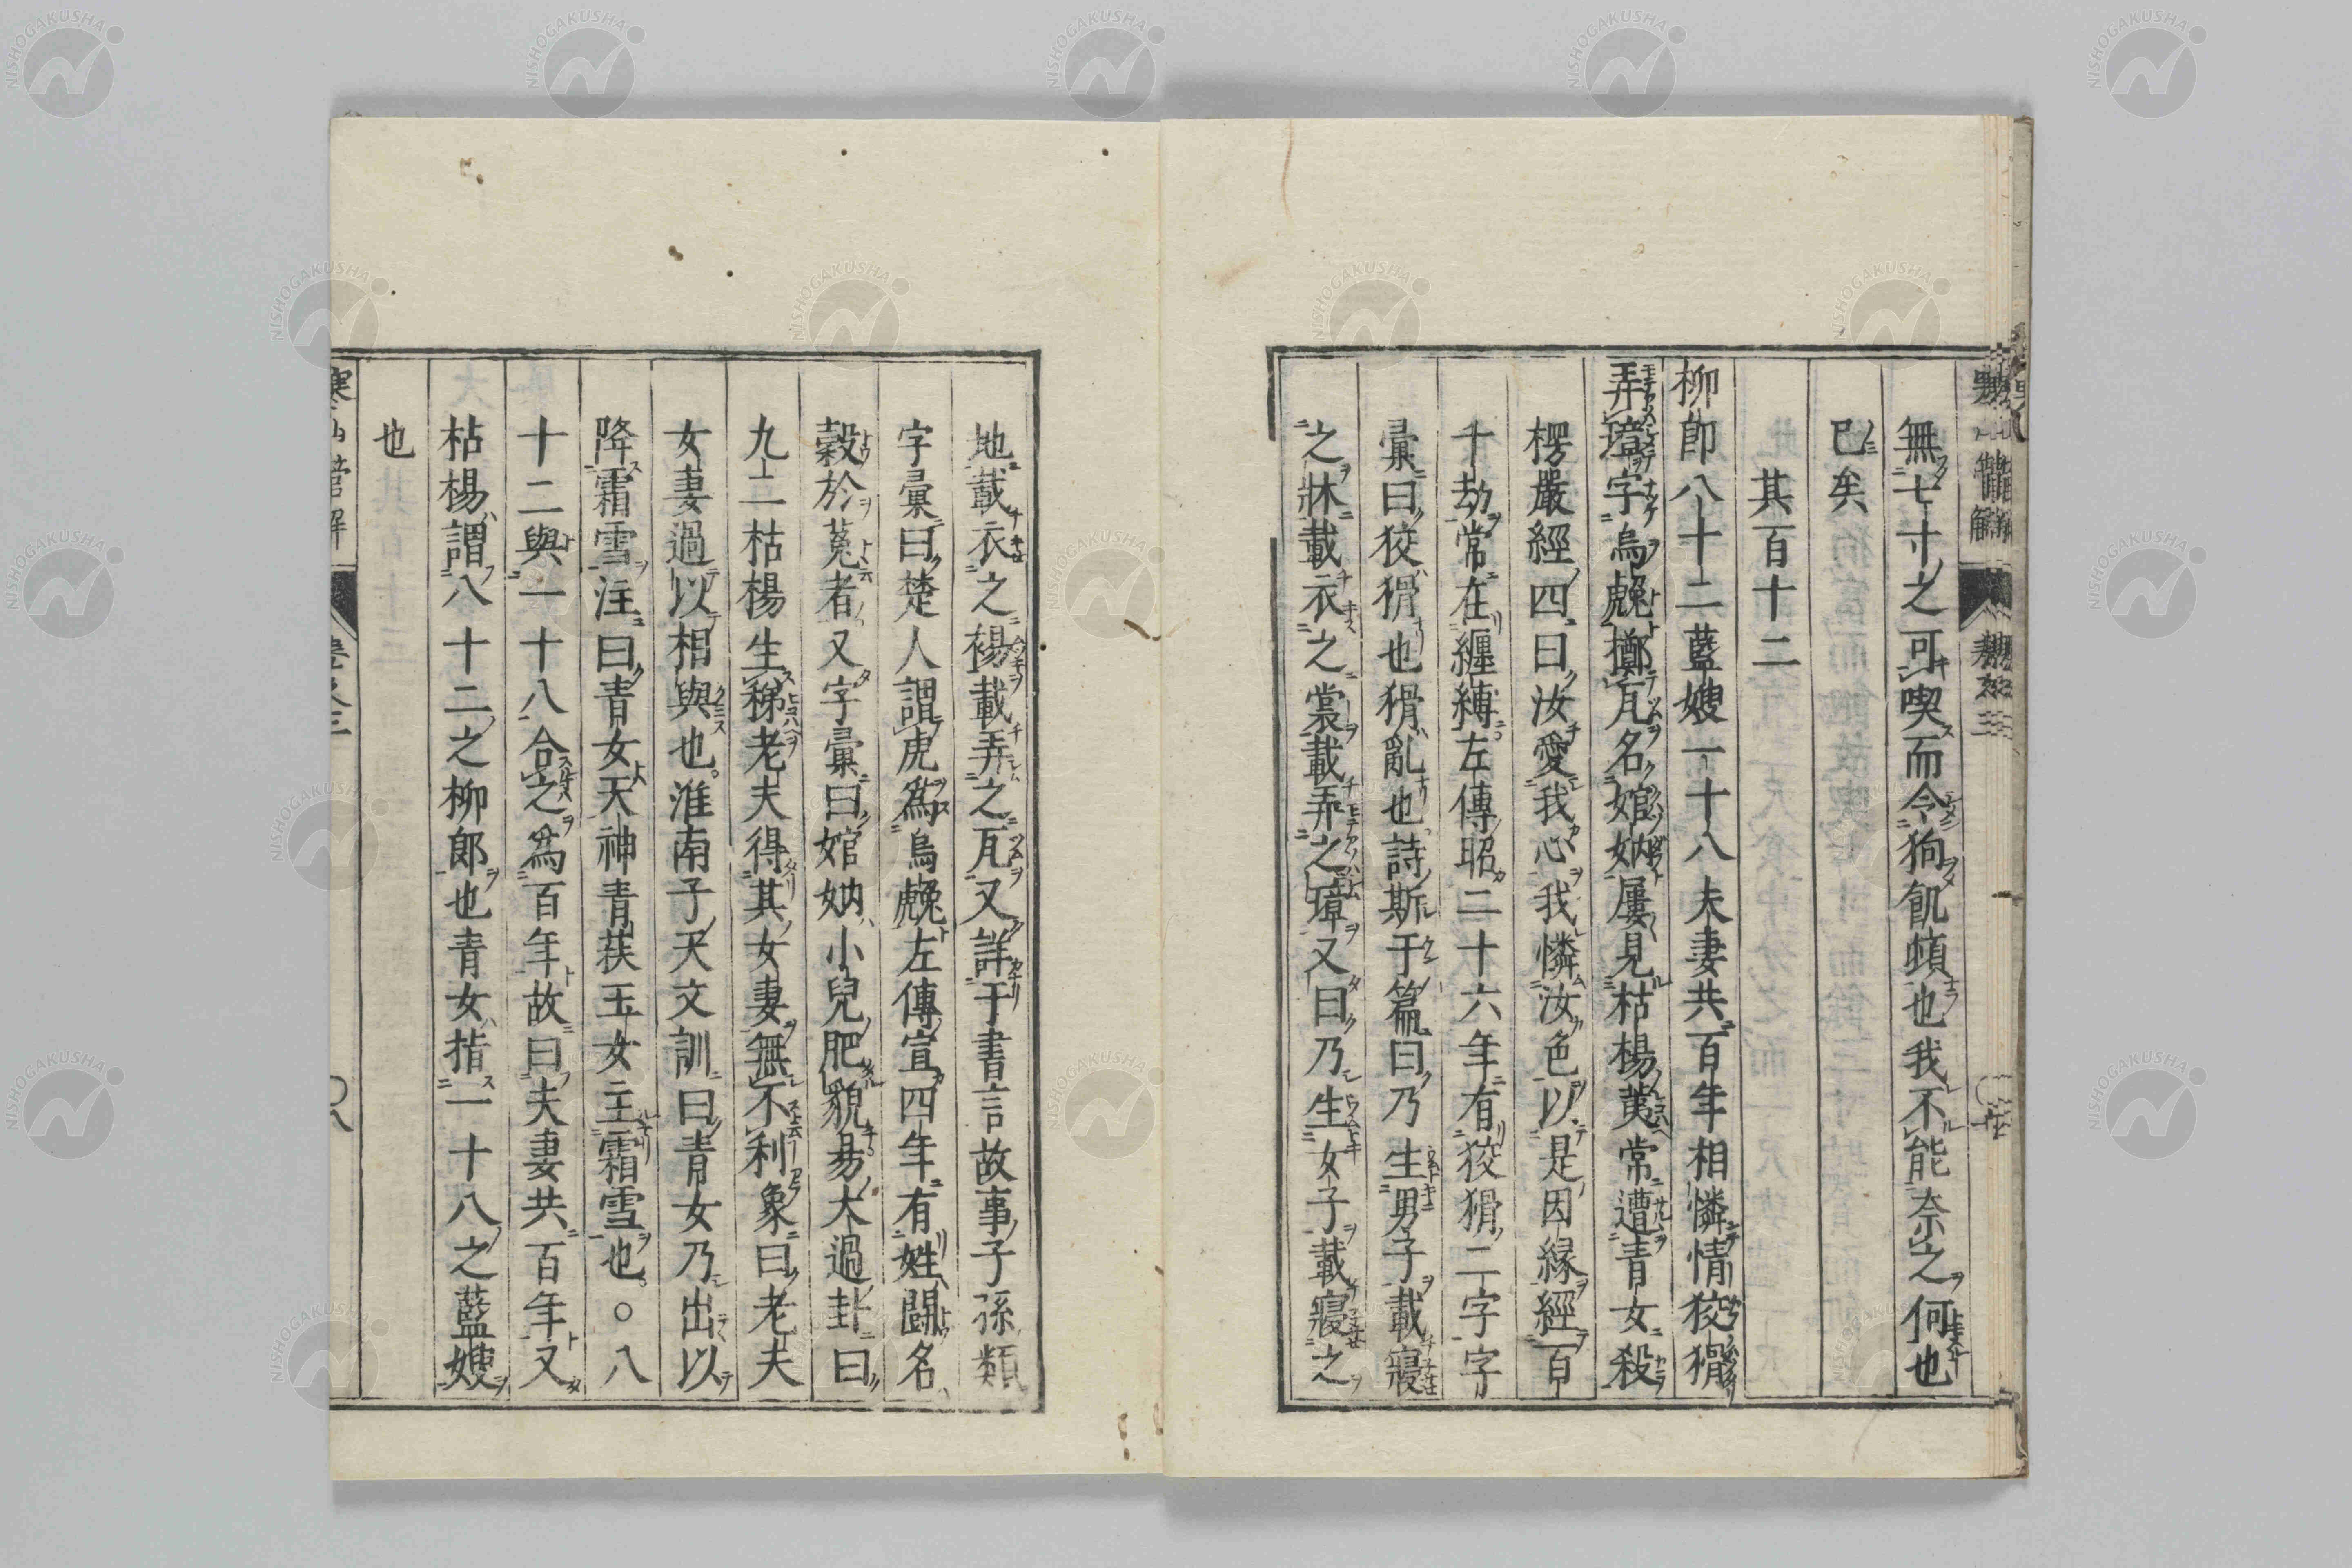 無七寸之可喫而令狗飢頓也我不能奈之何也
已矣
其百十二
柳郎八十二藍嫂一十八夫妻共百年相憐情狡猾
弄璋字烏𧇃擲瓦名婠妠屢見枯楊荑常遭青女殺
楞嚴經四曰汝愛我心我憐汝色以是因緣經百
千劫常在纏縛左傳昭二十六年有狡猾二字字
彙曰狡猾也猾亂也詩斯干篇曰乃生男子載寢
之牀載衣之裳載弄之璋又曰乃生女子載寢之
地載衣之裼載弄之瓦又詳于書言故事子孫類
字彙曰楚人謂虎爲烏𧇃左傳宣四年有姓鬭名
穀於菟者又字彙曰婠妠小兒肥貌易大過卦曰
九二枯楊生稊老夫得其女妻無不利象曰老夫
女妻過以相與也淮南子天文訓曰青女乃出以
降霜雪注曰青女天神青䓇玉女主霜雪也○八
十二與一十八合之爲百年故曰夫妻共百年又
枯楊謂八十二之柳郎也青女指一十八之藍嫂
也
寒山詩管解 卷之三 〇八
NISHOGAKUSHA